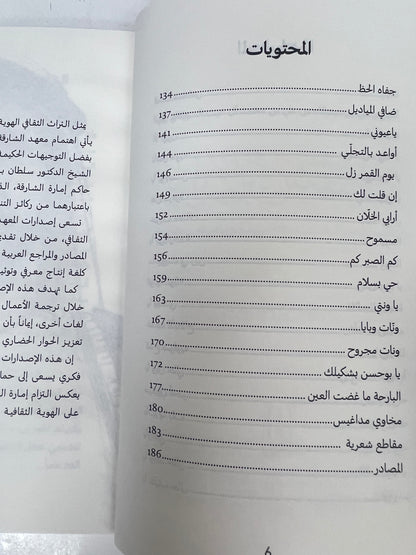 المحتويات
جفاه الحظ 134
ضافي المياديل 137
ياعيوني 141
أواعد بالتجلّي 144
يوم القمر زل 146
إن قلت لك 149
أرابي الخلّان 152
مسموح 154
كم الصبر كم 156
حي بسلام 159
يا ونتي 163
ونّات وبايا 167
ونات مجروح 170
يا بوحسن بشكيلك 172
البارحة ما غضت العين 177
مخاوي مداغيس 180
مقاطع شعرية 183
المصادر 186
6
يمثل التراث الثقافي الهوية
يأتي اهتمام معهد الشارقة
بفضل التوجيهات الحكيمة
الشيخ الدكتور سلطان
حاكم إمارة الشارقة،
باعتبارهما من ركائز
تسعى إصدارات المعهد
الثقافي، من خلال
المصادر والمراجع العربية
كلفة إنتاج معرفي
كما تهدف هذه
خلال ترجمة الأعمال
لغات أخرى، إيماناً بأن
تعزيز الحوار الحضاري
إن هذه الإصدارات
فكري يسعى إلى
يعكس التزام إمارة
على الهوية الثقافية